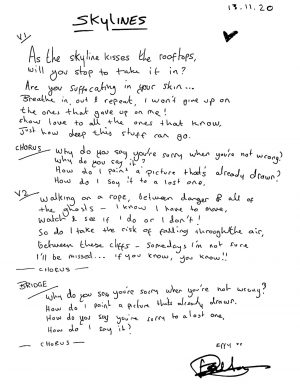 13.11.20
SKYLINES
V1
As the skyline kisses the rooftops,
will you stop to take it in?
Are you suffocating in your skin...
Breathe in, out & repeat, I won't give up on
the ones that gave up on me!
show love to all the ones that know,
Just how deep this stuff can go.
CHORUS
Why do you say you're sorry when you're not wrong?
Why do you say it?
How do I paint a picture that's already drawn?
How do I say it to a lost one,
V2
walking on a rope, between danger & all of
the ghosts - I know I have to move,
watch & see if I do or I don't!
So do I take the risk of falling through the air,
between these cliffs - somedays I'm not sure
I'll be missed... if you know, you know!!
— CHORUS —
BRIDGE
Why do you say you're sorry when you're not wrong?
How do I paint a picture thats already drawn.
How do you say you're sorry to a lost one,
How do I say it?
— CHORUS —